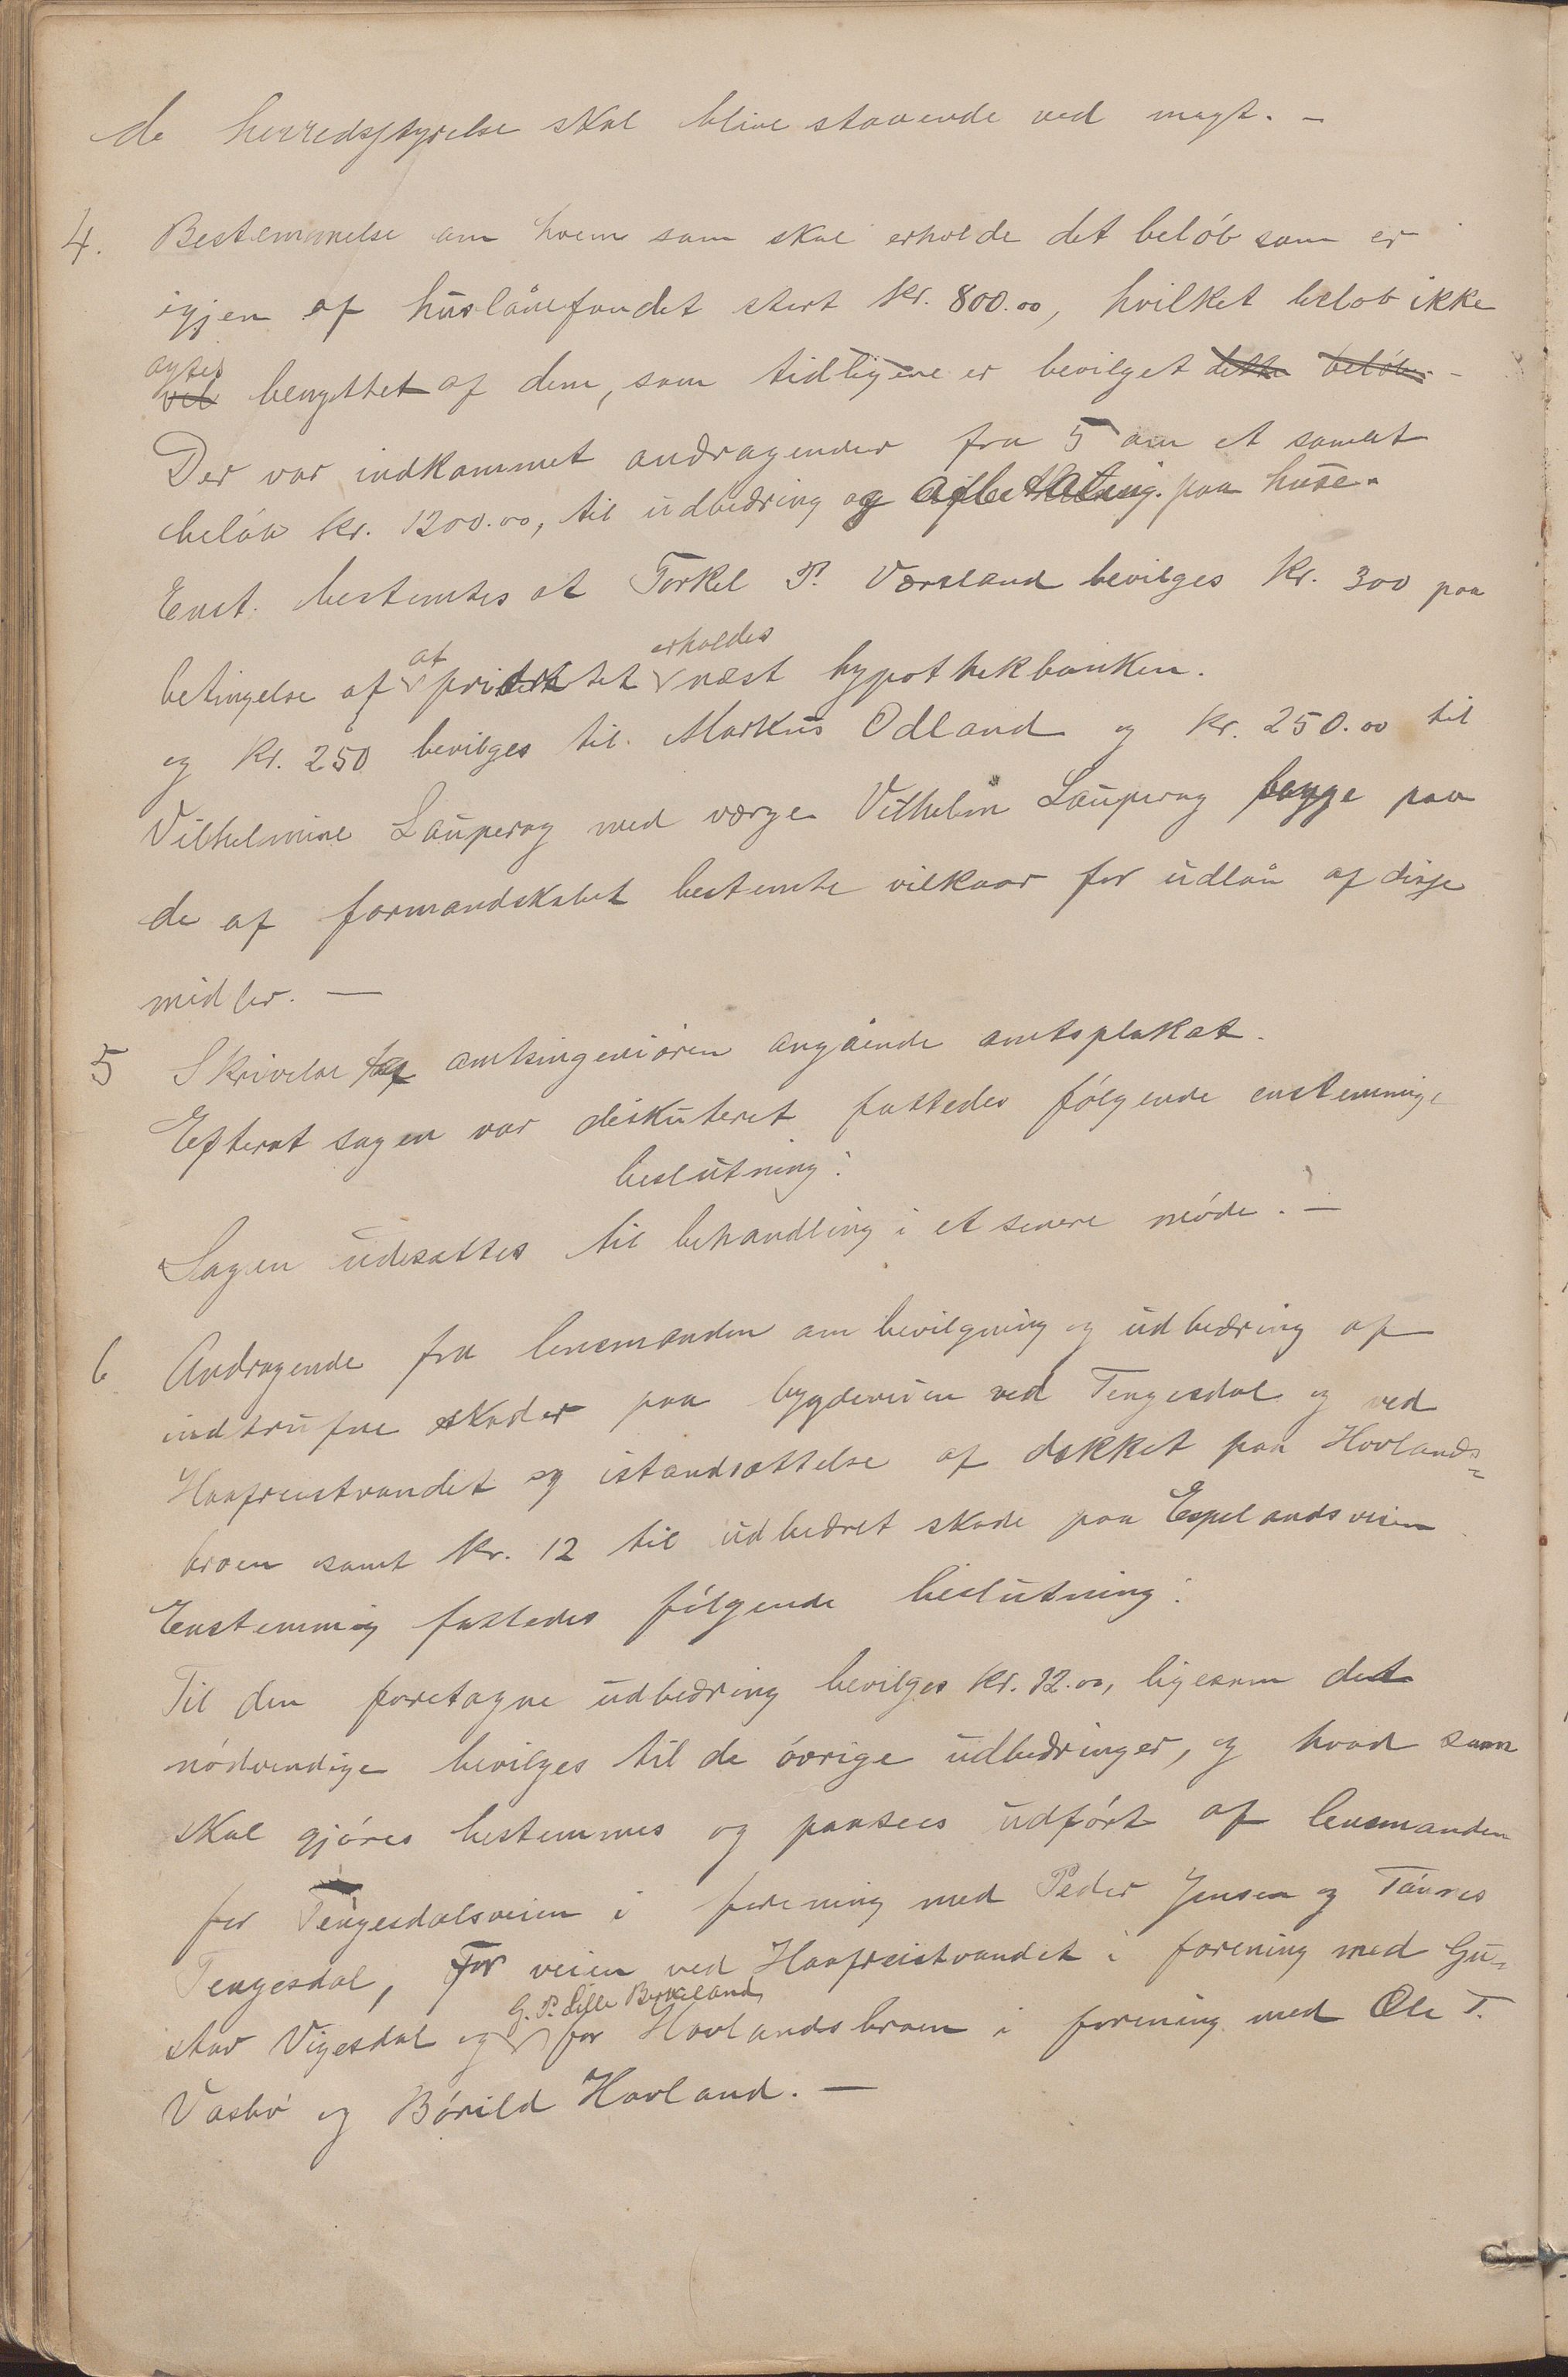 de herredsstyrelse skal blive staaende ved magt. —
4. Bestemmelse om hvem som skal erholde det beløb som er
igjen af huslånefondet stort kr. 800.00, hvilket beløb ikke
agtes
vil benyttet af dem, som tidligere er bevilget dette beløb. -
Der var indkommet andragender fra 5 om et samlet
beløb kr. 1200.00, til udbedring og afbetaling paa huse.
Enst. bestemtes at Torkel P. Værsland bevilges kr. 300 paa
at erholdes
betingelse af prioritet næst hypothekbanken.
og kr. 250 bevilges til Markus Odland og kr. 250.00 til
Vilhelmine Lauperag med værge Vilhelm Lauperag begge paa
de af formandskabet bestemte vilkaar for udlån af disse
midler. —
5 Skrivelse af amtsingeniøren angående amtsplakat.
Efterat sagen var diskuteret fattedes følgende enstemmige
beslutning:
Sagen udsattes til behandling i et senere møde. —
6 Andragende fra lensmanden om bevilgning og udbedring af
indtrufne skader paa bygdeveien ved Tengesdal og ved
Haafreistvandet og istandsættelse af dækket paa Hovlands-
broen samt kr. 12 til udbedret skade paa Espelandsveien
Enstemmig fattedes følgende beslutning:
Til den foretagne udbedring bevilges kr. 12.00, ligesom det
nødvendige bevilges til de øvrige udbedringer, og hvad som
skal gjøres bestemmes og paasees udført af lensmanden
for Tengesdalsveien i forening med Peder Jensen og Tønnes
Tengesdal, for veien ved Haafreistvandet i forening med Gu-
G. P. Lille Birkeland
stav Vigesdal og for Hovlandsbroen i forening med Ole T.
Vasbø og Børild Hovland. —